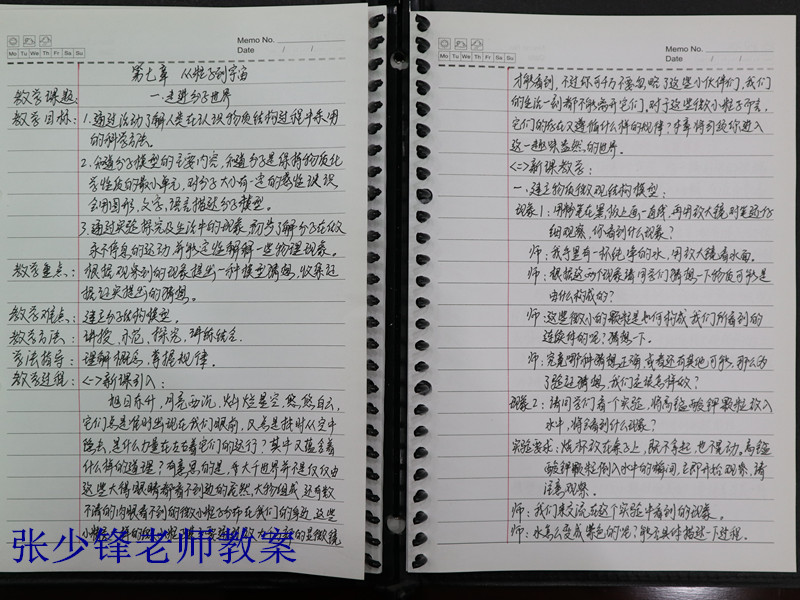 Memo No.
Mo Tu We Th Fr Sa Su
Date / /
第七章 从粒子到宇宙
教学课题: 一.走进分子世界
教学目标: 1.通过活动了解人类在认识物质结构过程中采用
的科学方法。
2.知道分子模型的主要内容,知道分子是保持物质化
学性质的最小单元,对分子大小有一定的感性认识
会用图形、文字、语言描述分子模型。
3.通过实验探究及生活中的现象,初步了解分子在做
永不停息的运动并能定性解释一些物理现象。
教学重点: 根据观察到的现象提出一种模型猜想,收集证
据证实提出的猜想。
教学难点: 建立分子结构模型。
教学方法: 讲授、示范、探究、讲练结合.
学法指导: 理解概念,掌握规律。
教学过程: <一>新课引入:
旭日东升,月亮西沉,灿烂星空,悠悠白云,
它们总是准时出现在我们眼前,又总是按时从空中
隐去,是什么力量在左右着它们的运行?其中又蕴含着
什么样的道理?有意思的是,大千世界并不是仅仅由
这些大得眼睛都看不到边的庞然大物组成,还有数
不清的肉眼看不到的微小粒子分布在我们的身边,这些
小粒子
的显微镜
张少锋老师教案
Memo No.
Mo Tu We Th Fr Sa Su
Date / /
才能看到,不过你可千万不要忽略了这些小伙伴们,我们
的生活一刻都不能离开它们。对于这些微小粒子而言,
它们的存在又遵循什么样的规律?本章将引领你进入
这一趣味盎然的世界。
<二>新课教学:
一.建立物质微观结构模型:
现象1:用粉笔在黑板上画一直线,再用放大镜对笔迹仔
细观察,你看到什么现象?
师:我手里有一杯纯净的水,用放大镜看水面。
师:根据这两个现象请同学们猜想一下物质可能是
由什么构成的?
师:这些微小的颗粒是如何构成我们所看到的
连续体的呢?猜想一下。
师:究竟哪种猜想正确,或者还有其他可能,那么为
了验证猜想,我们应该怎样做?
现象2:请同学们看个实验,将高锰酸钾颗粒放入
水中,将会看到什么现象?
实验要求:烧杯放在桌子上,既不拿起,也不晃动。高锰
酸钾颗粒倒入水中的瞬间,立即开始观察,请
注意观察。
师:我们来交流在这个实验中看到的现象。
师:水怎么变成紫色的呢?能否具体描述一下过程.